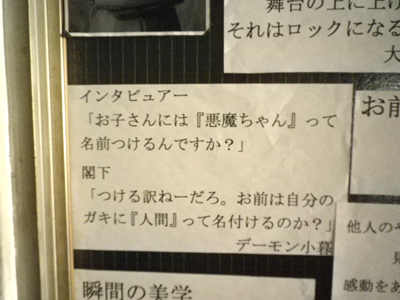 舞台の上に上げ
それはロックになる
大
インタビュアー
「お子さんには『悪魔ちゃん』って
名前つけるんですか？」
閣下
「つける訳ねーだろ。お前は自分の
ガキに『人間』って名付けるのか？」
デーモン小暮
お前
他人の
感動をあ
瞬間の美学